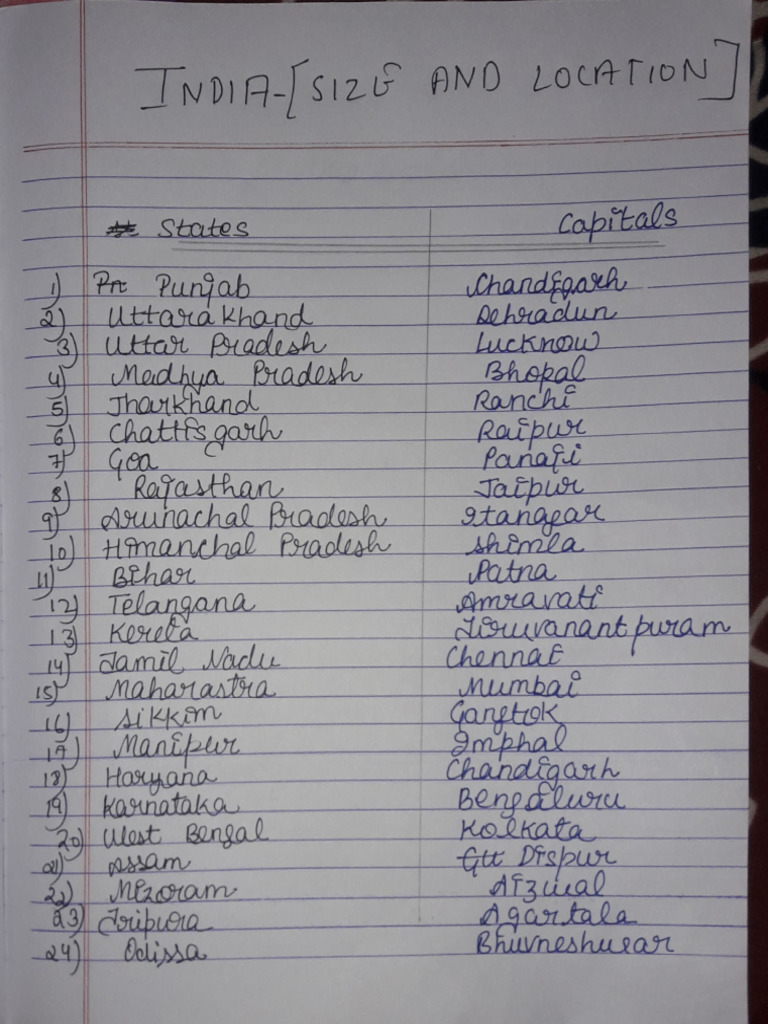 INDIA-[SIZE AND LOCATION]
States Capitals
1) Punjab Chandigarh
2) Uttarakhand Dehradun
3) Uttar Pradesh Lucknow
4) Madhya Pradesh Bhopal
5) Jharkhand Ranchi
6) Chattisgarh Raipur
7) Goa Panaji
8) Rajasthan Jaipur
9) Arunachal Pradesh Itanagar
10) Himanchal Pradesh Shimla
11) Bihar Patna
12) Telangana Amravati
13) Kerela Tiruvanantpuram
14) Tamil Nadu Chennai
15) Maharastra Mumbai
16) Sikkim Gangtok
17) Manipur Imphal
18) Haryana Chandigarh
19) Karnataka Bengaluru
20) West Bengal Kolkata
21) Assam Dispur
22) Mizoram Aizwal
23) Tripura Agartala
24) Odissa Bhuvneshwar